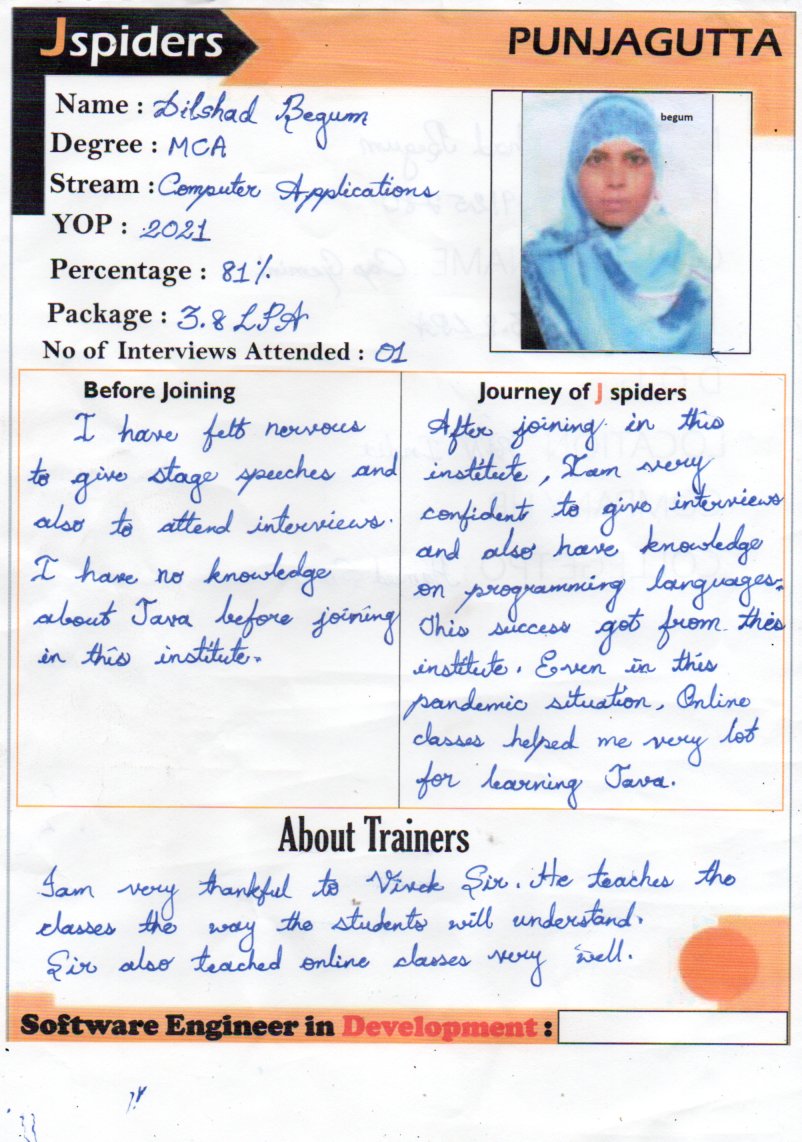 Jspiders
PUNJAGUTTA
Name : Dilshad Begum
begum
Degree : MCA
Stream : Computer Applications
YOP : 2021
Percentage : 81%
Package : 3.8 LPA
No of Interviews Attended : 01
Before Joining
I have felt nervous
to give stage speeches and
also to attend interviews.
I have no knowledge
about Java before joining
in this institute.
Journey of J spiders
After joining in this
institute, I am very
confident to give interviews
and also have knowledge
on programming languages.
This success got from this
institute. Even in this
pandemic situation, Online
classes helped me very lot
for learning Java.
About Trainers
I am very thankful to Vivek Sir. He teaches the
classes the way the students will understand.
Sir also teached online classes very well.
Software Engineer in Development :